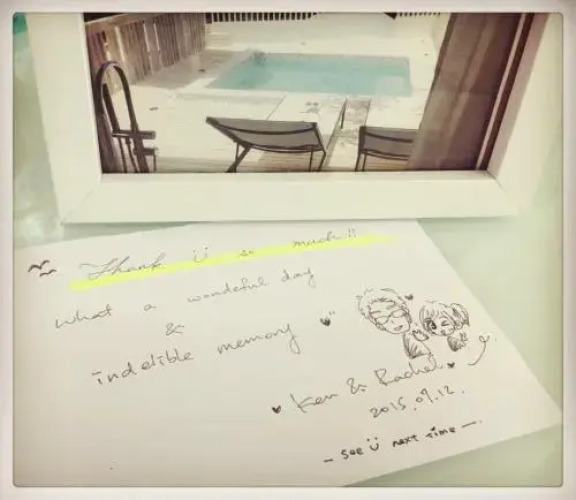 Thank Ü so much!!
What a wondeful day
&
indelible memory
Ken & Rachel
2015.07.12.
— see Ü next time —